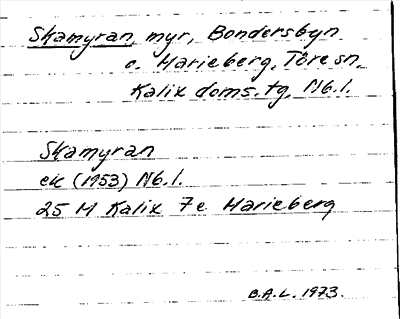 Skamyran, myr, Bondersbyn
o. Marieberg, Töre sn,
Kalix doms.tg, Nb.l.
Skamyran
ek (1953) Nb.l.
25 M Kalix 7e Marieberg
B.A.L. 1973.